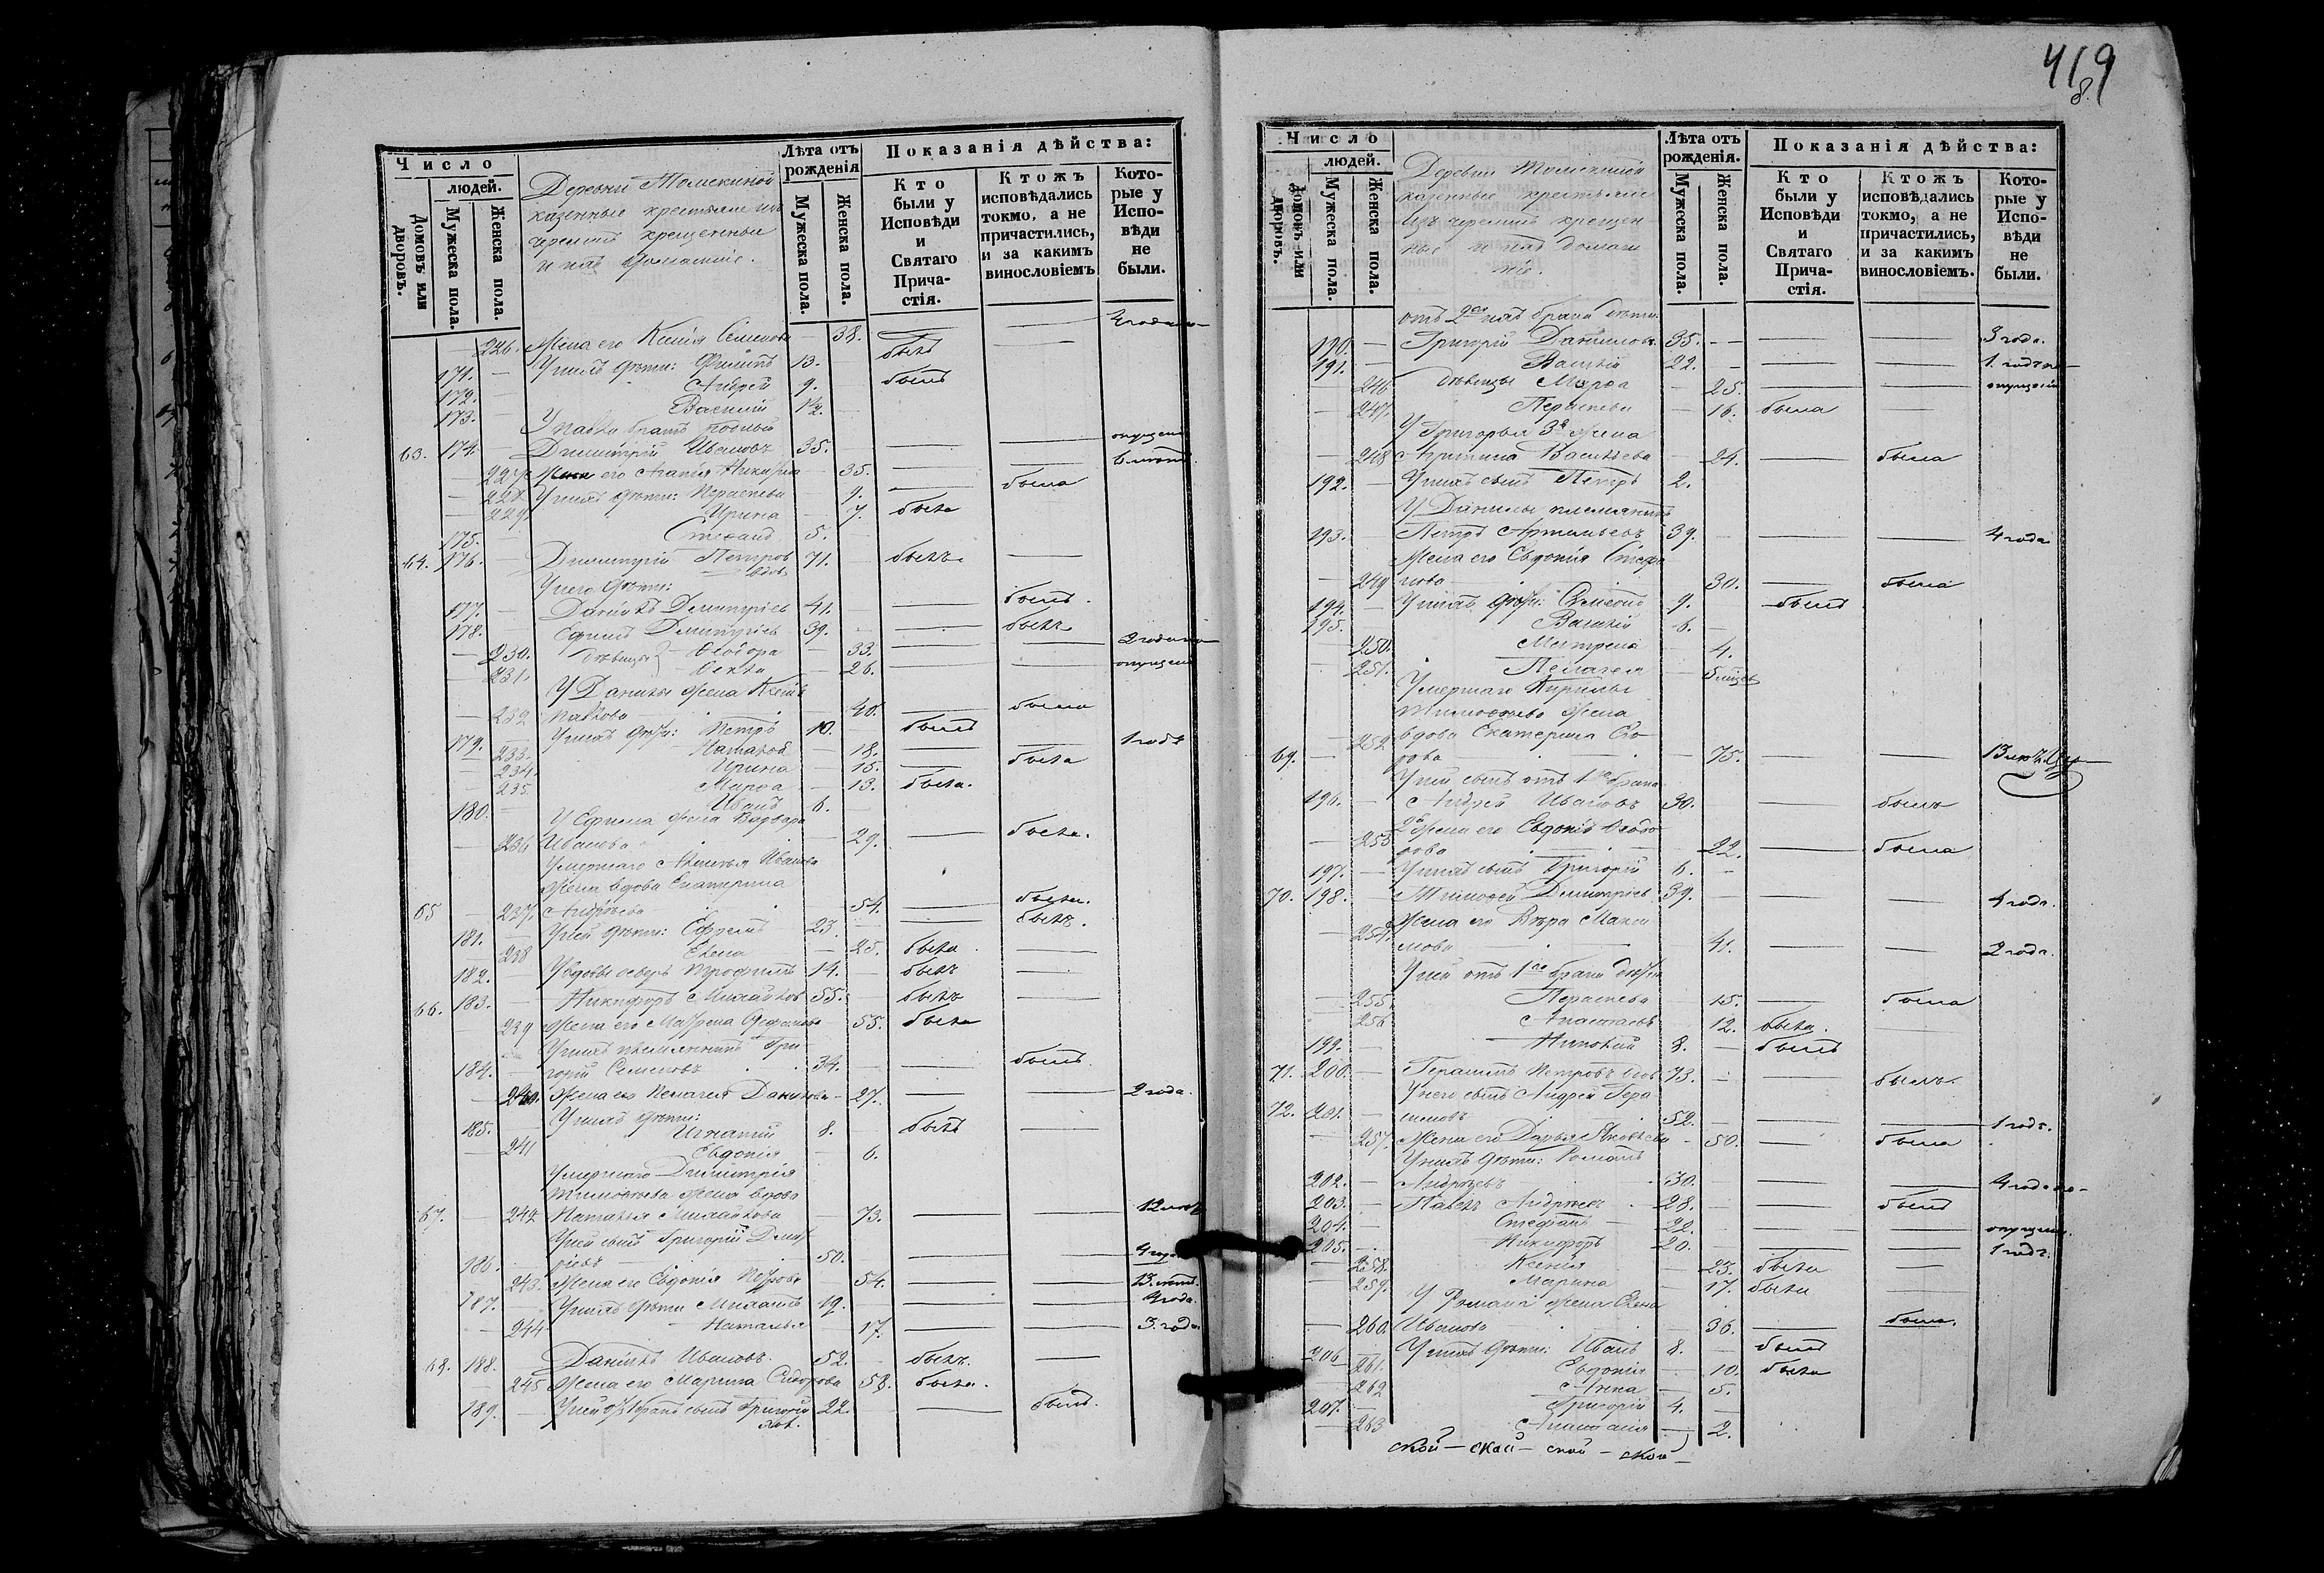 Число
людей.
Домовъ или дворовъ.
Мужеска пола.
Женска пола.
Деревни
казенные крестьяне изъ
черемисъ крещенные
и ихъ домашніе.
Лѣта отъ рожденія
Мужеска пола.
Женска пола.
Показанія дѣйства:
Кто были у Исповѣди и Святаго Прича-стія.
Ктожъ исповѣдались токмо, а не причастились, и за какимъ винословіемъ
Кото-рые у Испо-вѣди не были.
226. Жена его Ксенія Семенова 38.
171. У нихъ дѣти: 13. былъ
172. Андрей 9. былъ
173. Василій 1½.
У Павла братъ родный
63. 174. Димитрій Ивановъ 35. опущенію
227. Жена его Агафія 35. 6 лѣтъ.
228. У нихъ дѣти: Параскева 9. была
229. Ирина 7. была
175. Стефанъ 5.
64. 176. Димитрій Петровъ вдовъ 71. былъ
У него дѣти:
177. Даніилъ Димитріевъ 41. былъ.
178. Ефимъ Димитріевъ 39. былъ
230. дѣвицы Ѳеодора 33. 2 года по
231. Ѳекла 26. опущенію
У Данилы жена Ксенія
232 Павлова 40. была
179. У нихъ дѣти: Петръ 10. былъ
233. Наталья 18. 1 годъ
234. Ирина 15. была
235. Марѳа 13. была.
180. Иванъ 6.
У Ефима жена Варвара
236 Иванова 29. была.
Умершаго Иванова
жена вдова Екатерина
65 237. Андреева 54. была.
181. У ней дѣти: Ефремъ 23. былъ.
238 Елена 25. была
182. У вдовы Трофимъ 14. былъ
66. 183. Никифоръ Михайловъ 55. былъ
239 Жена его Матрена 55. была
У нихъ племянникъ Гри-
184. горій Семеновъ 34. былъ
240. Жена его Пелагея Данилова 27. 2 года.
У нихъ дѣти:
185. Игнатій 8. былъ
241 Евдокія 6.
Умершаго Димитрія
Тимоѳеева жена вдова
67. 242 Наталья Михайлова 73. 12 лѣтъ
У ней сынъ Григорій Димит
186. ріевъ 50. 4 года
243. Жена его Евдокія Петрова 54. 13 лѣтъ.
187. У нихъ дѣти Михаилъ 19. 4 года.
244 Наталья 17. 3 года.
68. 188. Даніилъ Ивановъ 52. былъ.
245 Жена его Марина Сидорова 58. была.
189. У ней сынъ Григорій 22. былъ.
419
Число
людей.
Домовъ или дворовъ.
Мужеска пола.
Женска пола.
Деревни
казенные крестьяне
изъ черемисъ крещен-
ные и ихъ домаш
ніе.
Лѣта отъ рожденія.
Мужеска пола.
Женска пола.
Показанія дѣйства:
Кто были у Исповѣди и Святаго Прича-стія.
Ктожъ исповѣдались токмо, а не причастились, и за какимъ винословіемъ.
Кото-рые у Испо-вѣди не были.
отъ 2го ихъ брака дѣти.
190. Григорій Даниловъ 35. 3 года.
191. Василій 22. 1 годъ по
246 дѣвицы Марѳа 25. опущенію
247. Параскева 16. была
У Григорья 3я жена
248 Васильева 24. была
192. У нихъ сынъ Петръ 2.
У Данилы племянникъ
193. Петръ Артемьевъ 39. 4 года
Жена его Евдокія Стефа
249 нова 30. была
194. У нихъ дѣти: 9. былъ
195. Василій 6.
250. Матрена 4.
251. Пелагея
Умершаго Кирилы
Тимоѳеева жена
вдова Екатерина Ѳео-
69. 252 рова 75. 13 лѣтъ.
У ней сынъ отъ 1го брака
196. Андрей Ивановъ 30. былъ
2я жена его Евдокія Ѳеодо
253 рова 22. была
197. У нихъ сынъ Григорій 6.
70. 198. Тимоѳей Димитріевъ 39. 4 года.
Жена его Вѣра Макси
254. мова 41. 2 года.
У ней отъ 1го брака дѣти
255. Параскева 15. была
256 Анастасія 12. была.
199. Николай 8. былъ
71. 200. Герасимъ Петровъ вдов 73. былъ.
У него сынъ Андрей Гера
72. 201. симовъ 52. 1 годъ.
257. Жена его Дарья Яковлева 50. была
У нихъ дѣти: Романъ
202. Андреевъ 30. 4 года по
203. Павелъ Андреевъ 28. былъ
204. Стефанъ 22. опущенію.
205. Никифоръ 20. 1 годъ.
258. Ксенія 23. была
259. Марина 17. была
У Романа жена Елена
260. Иванова 36. была.
206 У нихъ дѣти: Иванъ 8. былъ
261. Евдокія 10. была
262 Анна 5.
207. Григорій 4.
263 Анастасія 2.
ской — ской — ской — ской